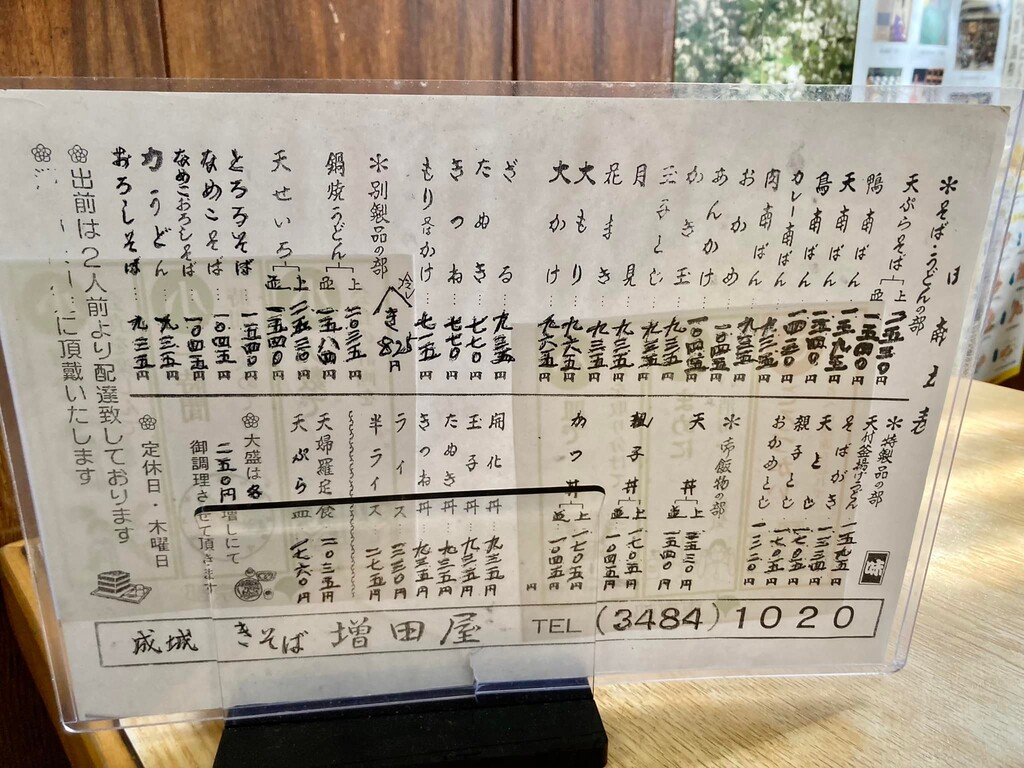 献立表
＊そば・うどんの部
天ぷらそば 上 二五三〇円
並 一五四〇円
鴨南ばん……一五九五円
天南ばん……一五四〇円
鳥南ばん……円
カレー南ばん……円
肉南ばん……円
おかめ……九三五円
あんかけ……円
かき玉……一〇四五円
玉子とじ……九三五円
月見……九三五円
花まき……九三五円
大もり……円
大かけ……円
ざる……九三五円
たぬき……七七〇円
きつね……七七〇円
もり又はかけ……七一五円
冷しき 825円
＊別製品の部
鍋焼うどん 上 二〇三五円
並 円
天せいろ 上 二五三〇円
並 一五四〇円
とろろそば……円
なめこそば……一〇四五円
なめこおろしそば……一〇四五円
力うどん……九三五円
おろしそば……九三五円
出前は2人前より配達致しております
に頂戴いたします
＊特製品の部
天付釜揚げうどん 一五九五円
そばがき……円
天とじ……円
親子とじ……円
おかめとじ……円
＊御飯物の部
天丼 上 二五三〇円
並 一五四〇円
親子丼 上 円
並 円
かつ丼 上 円
並 一〇四五円
開化丼……九三五円
玉子丼……九三五円
たぬき丼……九三五円
きつね丼……九三五円
ライス……三三〇円
半ライス……二七五円
天婦羅定食 二〇三五円
天ぷら皿 一七六〇円
大盛は各二五〇円増しにて
御調理させて頂きます
定休日・木曜日
味
成城 きそば 増田屋 TEL (3484) 1020